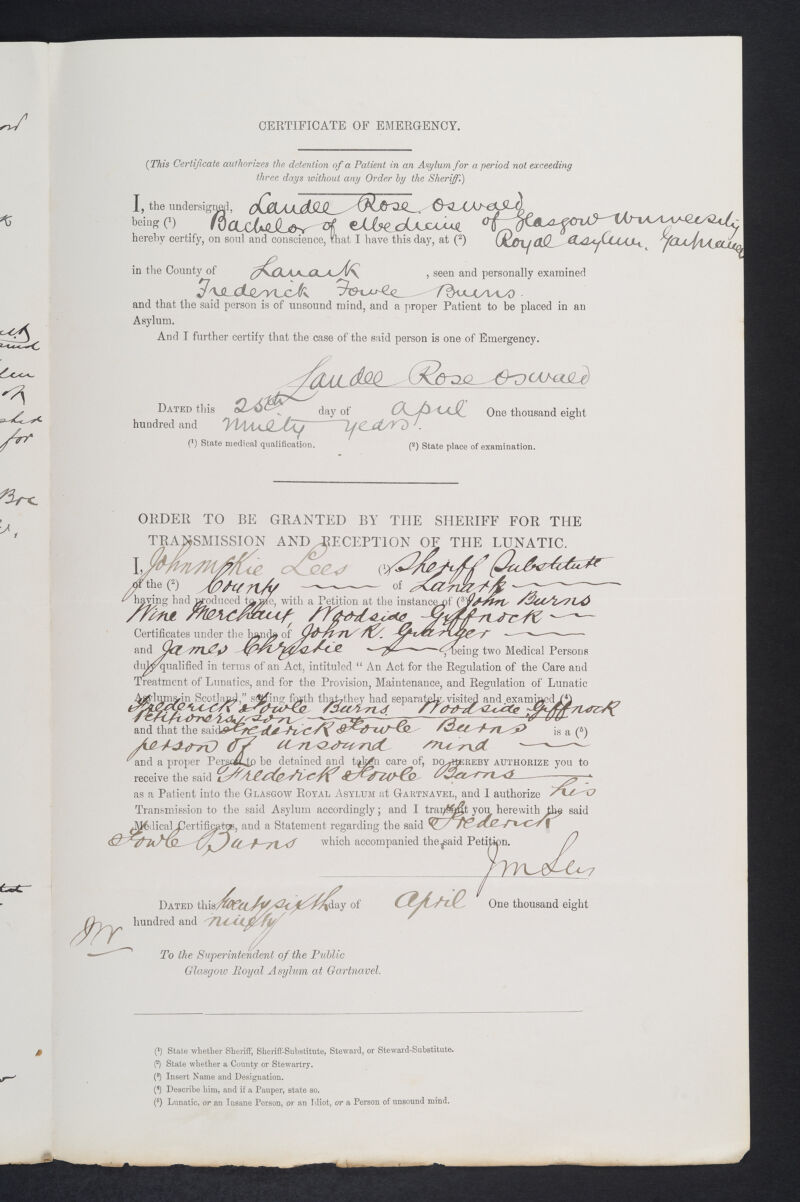 CERTIFICATE OF EMERGENCY.
(This Certificate authorizes the detention of a Patient in an Asylum for a period not exceeding
three days without any Order by the Sheriff.)
I, the undersigned, Landel Rose Oswald
being (1) Bachelor of Medicine of Glasgow University
hereby certify, on soul and conscience, that I have this day, at (2) Royal asylum, Gartnavel
in the County of Lanark , seen and personally examined
Frederick Fowle Burns.
and that the said person is of unsound mind, and a proper Patient to be placed in an
Asylum.
And I further certify that the case of the said person is one of Emergency.
Landel Rose Oswald
DATED this 25th day of April One thousand eight
hundred and ninety years.
(1) State medical qualification. (2) State place of examination.
ORDER TO BE GRANTED BY THE SHERIFF FOR THE
TRANSMISSION AND RECEPTION OF THE LUNATIC.
I, John McKie Lees (1) Sheriff Substitute
of the (2) County of Lanark
having had produced to me, with a Petition at the instance of (3) John Burns
Wine Merchant, Woodside Giffnock
Certificates under the hands of John K. Granger
and James Christie , being two Medical Persons
duly qualified in terms of an Act, intituled “ An Act for the Regulation of the Care and
Treatment of Lunatics, and for the Provision, Maintenance, and Regulation of Lunatic
Asylums in Scotland,” setting forth that they had separately visited and examined (4)
Frederick Fowle Burns Woodside Giffnock
Petitioners son
and that the said Frederick Fowle Burns is a (5)
person of unsound mind
and a proper Person to be detained and taken care of, DO HEREBY AUTHORIZE you to
receive the said Frederick Fowle Burns
as a Patient into the GLASGOW ROYAL ASYLUM at GARTNAVEL, and I authorize his
Transmission to the said Asylum accordingly; and I transmit you herewith the said
Medical Certificates, and a Statement regarding the said Frederick
Fowle Burns which accompanied the said Petition.
J M Lees
DATED this twenty sixth day of April One thousand eight
hundred and ninety
To the Superintendent of the Public
Glasgow Royal Asylum at Gartnavel.
(1) State whether Sheriff, Sheriff-Substitute, Steward, or Steward-Substitute.
(2) State whether a County or Stewartry.
(3) Insert Name and Designation.
(4) Describe him, and if a Pauper, state so.
(5) Lunatic, or an Insane Person, or an Idiot, or a Person of unsound mind.